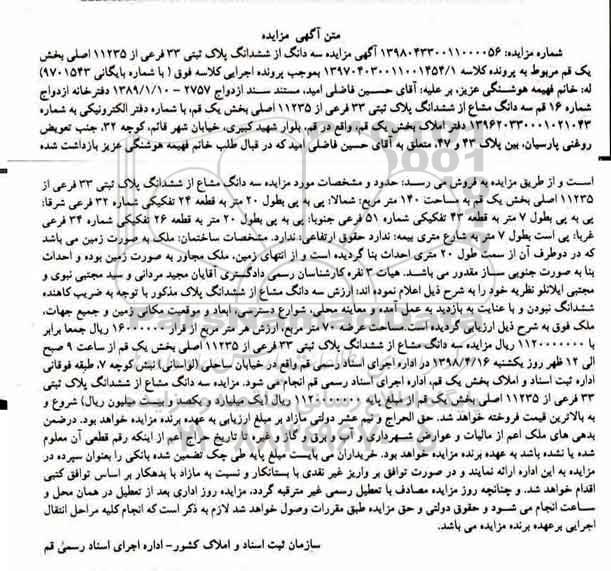 متن آگهی مزایده
شماره مزایده: ۱۳۹۸۰۴۳۳۰۰۱۱۰۰۰۰۵۶ آگهی مزایده سه دانگ از ششدانگ پلاک ثبتی ۳۳ فرعی از ۱۱۲۳۵ اصلی بخش
یک قم مربوط به پرونده کلاسه ۱۳۹۷۰۴۰۳۰۰۱۱۰۰۱۴۵۴/۱ بموجب پرونده اجرایی کلاسه فوق ( با شماره بایگانی ۹۷۰۱۵۴۳)
له: خانم فهیمه هوشنگی عزیز، بر علیه: آقای حسین فاضلی امید، مستند سند ازدواج ۲۷۵۷ – ۱۳۸۹/۱/۱۰ دفترخانه ازدواج
شماره ۱۶ قم سه دانگ مشاع از ششدانگ پلاک ثبتی ۳۳ فرعی از ۱۱۲۳۵ اصلی بخش یک قم، با شماره دفتر الکترونیکی به شماره
۱۳۹۶۲۰۳۳۰۰۰۱۰۲۱۰۴۳ دفتر املاک بخش یک قم، واقع در قم، بلوار شهید کبیری، خیابان شهر قائم، کوچه ۳۲، جنب تعویض
روغنی پارسیان، بین پلاک ۴۳ و ۴۷، متعلق به آقای حسین فاضلی امید که در قبال طلب خانم فهیمه هوشنگی عزیز بازداشت شده
است و از طریق مزایده به فروش می رسد: حدود و مشخصات مورد مزایده سه دانگ مشاع از ششدانگ پلاک ثبتی ۳۳ فرعی از
۱۱۲۳۵ اصلی بخش یک قم به مساحت ۱۴۰ متر مربع: شمالا: پی به پی بطول ۲۰ متر به قطعه ۲۴ تفکیکی شماره ۳۲ فرعی شرقا:
پی به پی بطول ۷ متر به قطعه ۴۳ تفکیکی شماره ۵۱ فرعی جنوبا: پی به پی بطول ۲۰ متر به قطعه ۲۶ تفکیکی شماره ۳۴ فرعی
غربا: پی است بطول ۷ متر به شارع متری بیمه: ندارد حقوق ارتفاعی: ندارد. مشخصات ساختمان: ملک به صورت زمین می باشد
که در دوطرف آن از سمت طول ۲۰ متری احداث بنا گردیده است و از انتهای زمین، ملک مجاور به صورت زمین بوده و احداث
بنا به صورت جنوبی ساز مقدور می باشد. هیات ۳ نفره کارشناسان رسمی دادگستری آقایان مجید مردانی و سید مجتبی نبوی و
مجتبی ایلانلو نظریه خود را به شرح ذیل اعلام نموده اند: ارزش سه دانگ مشاع از ششدانگ پلاک مذکور با توجه به ضریب کاهنده
ششدانگ نبودن و با عنایت به بازدید به عمل آمده و معاینه محلی، شوارع دسترسی، ابعاد و موقعیت مکانی زمین و جمیع جهات،
ملک فوق به شرح ذیل ارزیابی گردیده است.مساحت عرصه ۷۰ متر مربع، ارزش هر متر مربع از قرار ۱۶۰۰۰۰۰۰ ریال جمعا برابر
با ۱۱۲۰۰۰۰۰۰۰ ریال مزایده سه دانگ مشاع از ششدانگ پلاک ثبتی ۳۳ فرعی از ۱۱۲۳۵ اصلی بخش یک قم از ساعت ۹ صبح
الی ۱۲ ظهر روز یکشنبه ۱۳۹۸/۴/۱۶ در اداره اجرای اسناد رسمی قم واقع در خیابان ساحلی (لواسانی) نبش کوچه ۷، طبقه فوقانی
اداره ثبت اسناد و املاک بخش یک قم، اداره اجرای اسناد رسمی قم انجام می شود. مزایده سه دانگ مشاع از ششدانگ پلاک ثبتی
۳۳ فرعی از ۱۱۲۳۵ اصلی بخش یک قم از مبلغ پایه ۱۱۲۰۰۰۰۰۰۰ ریال (یک میلیارد و یکصد وبیست میلیون ریال) شروع و
به بالاترین قیمت فروخته خواهد شد. حق الحراج و نیم عشر دولتی مازاد بر مبلغ ارزیابی به عهده برنده مزایده خواهد بود. درضمن
بدهی های ملک اعم از مالیات و عوارض شهرداری و آب و برق و گاز و غیره تا تاریخ حراج اعم از اینکه رقم قطعی آن معلوم
شده یا نشده باشد به عهده برنده مزایده خواهد بود. خریداران می بایست مبلغ پایه طی چک تضمین شده بانکی را بعنوان سپرده در
مزایده به این اداره ارائه نمایند و در صورت توافق بر واریز غیر نقدی با بستانکار و نسبت به مازاد با بدهکار بر اساس توافق کتبی
اقدام خواهد شد. و چنانچه روز مزایده مصادف با تعطیل رسمی غیر مترقبه گردد، مزایده روز اداری بعد از تعطیل در همان محل و
ساعت انجام می شود و حقوق دولتی و حق مزایده طبق مقررات وصول خواهد شد لازم به ذکر است که انجام کلیه مراحل انتقال
اجرایی برعهده برنده مزایده می باشد.
سازمان ثبت اسناد و املاک کشور– اداره اجرای اسناد رسمی قم